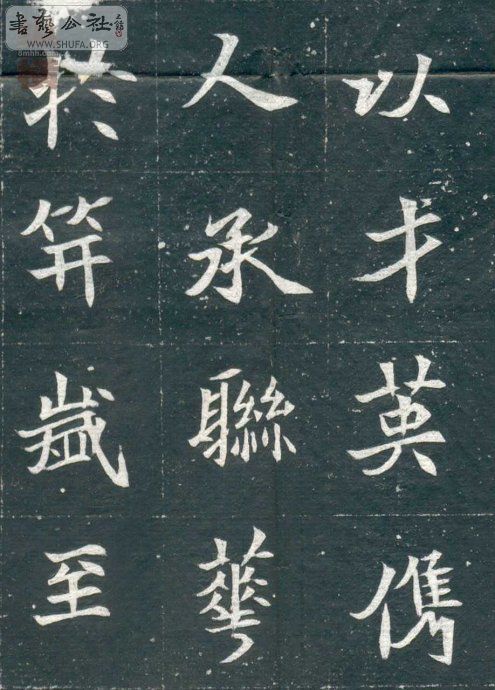 書藝公社
WWW.SHUFA.ORG
以才英儁
人承聯華
笄歲至